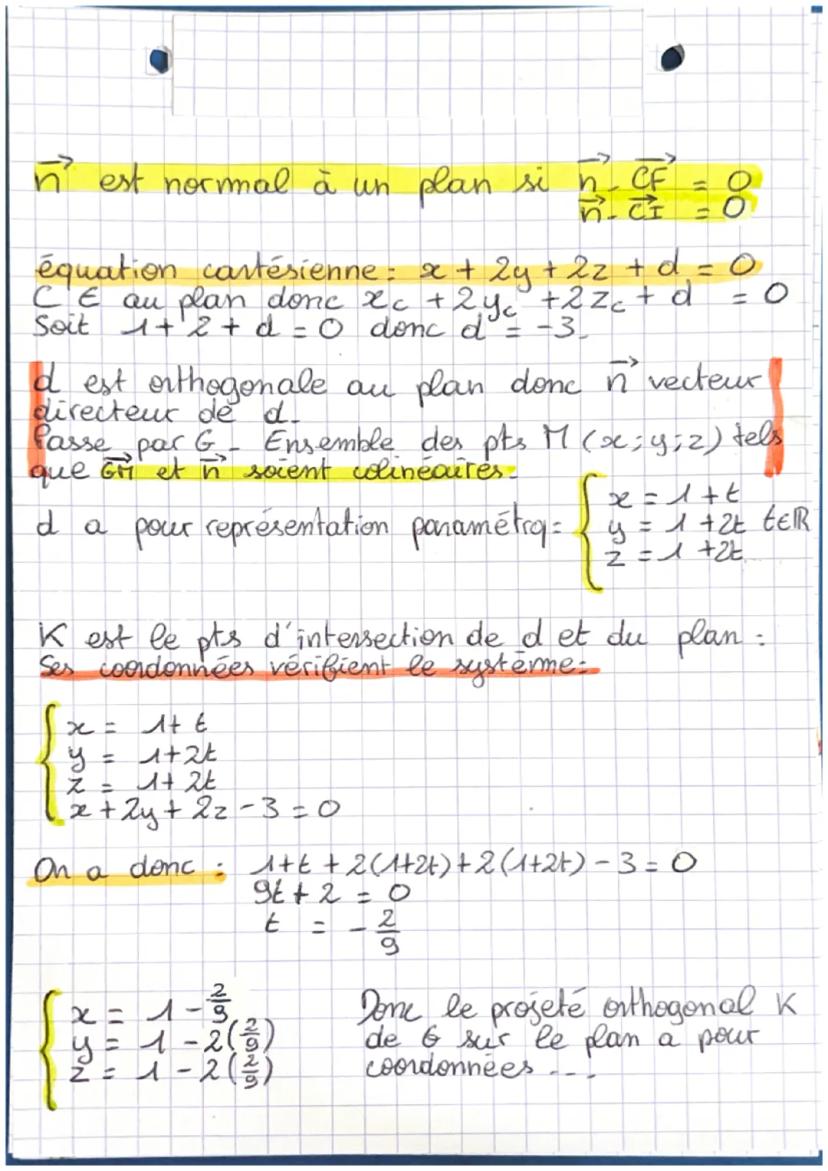 n⃗ est normal à un plan si n⃗ . CF⃗ = 0
n⃗ . CI⃗ = 0
équation cartésienne : x + 2y + 2z + d = 0
C ∈ au plan donc xc + 2yc + 2zc + d = 0
Soit 1 + 2 + d = 0 donc d = -3.
d est orthogonale au plan donc n⃗ vecteur
directeur de d.
Passe par G. Ensemble des pts M (x ; y ; z) tels
que GM⃗ et n⃗ soient colinéaires.
d a pour représentation paramétrq :
{ x = 1 + t
y = 1 + 2t t∈ℝ
z = 1 + 2t
K est le pts d'intersection de d et du plan :
Ses coordonnées vérifient le système :
{ x = 1 + t
y = 1 + 2t
z = 1 + 2t
x + 2y + 2z - 3 = 0
On a donc : 1 + t + 2(1+2t) + 2(1+2t) - 3 = 0
9t + 2 = 0
t = - 2/9
{ x = 1 - 2/9
y = 1 - 2(2/9)
z = 1 - 2(2/9)
Donc le projeté orthogonal K
de G sur le plan a pour
coordonnées ...